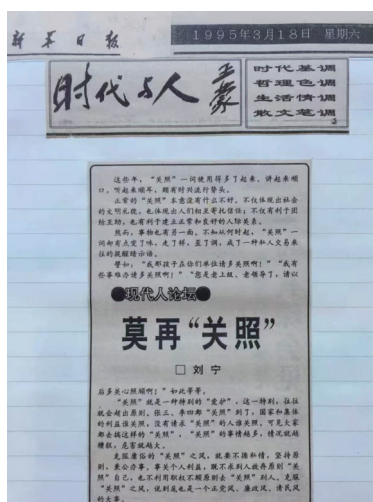 新华日报
1995年3月18日 星期六
时代与人
王蒙
时代基调
哲理色调
生活情调
散文笔调
这些年，“关照”一词使用得多了起来，讲起来顺
口，听起来顺耳，颇有时兴流行势头。
正常的“关照”本意没有什么不好。不仅体现出社会
的文明礼貌，也体现出人们相互寄托信任；不仅有利于团
结互助，也有利于建立正常和良好的人际关系。
然而，事物也有另一面。不知从何时起，“关照”一
词却有点变了味，走了样，歪了调，成了一种私人交易来
往的提醒暗示语。
譬如，“我那孩子在你们单位请多关照啊！”“我有
些事难办请多关照啊！”“您是老上级、老领导了，请以
现代人论坛
莫再“关照”
□ 刘宁
后多关心照顾啊！”如此等等。
“关照”就是一种特别的“爱护”，这一特别，往往
就会超出原则，张三、李四都“关照”到了，国家和集体
的利益谁关照，没有请求“关照”的人谁关照，可见大家
都去搞这样的“关照”，“关照”的事情越多，情况就越
糟糕，危害就越大。
克服庸俗的“关照”之风，就要不搞私情，坚持原
则，秉公办事，事关个人利益，既不求别人放弃原则“关
照”自己，也不利用职权不顾原则去“关照”别人。克服
“关照”之风，说到底也是一个正党风、廉政风、清民风
的大事。